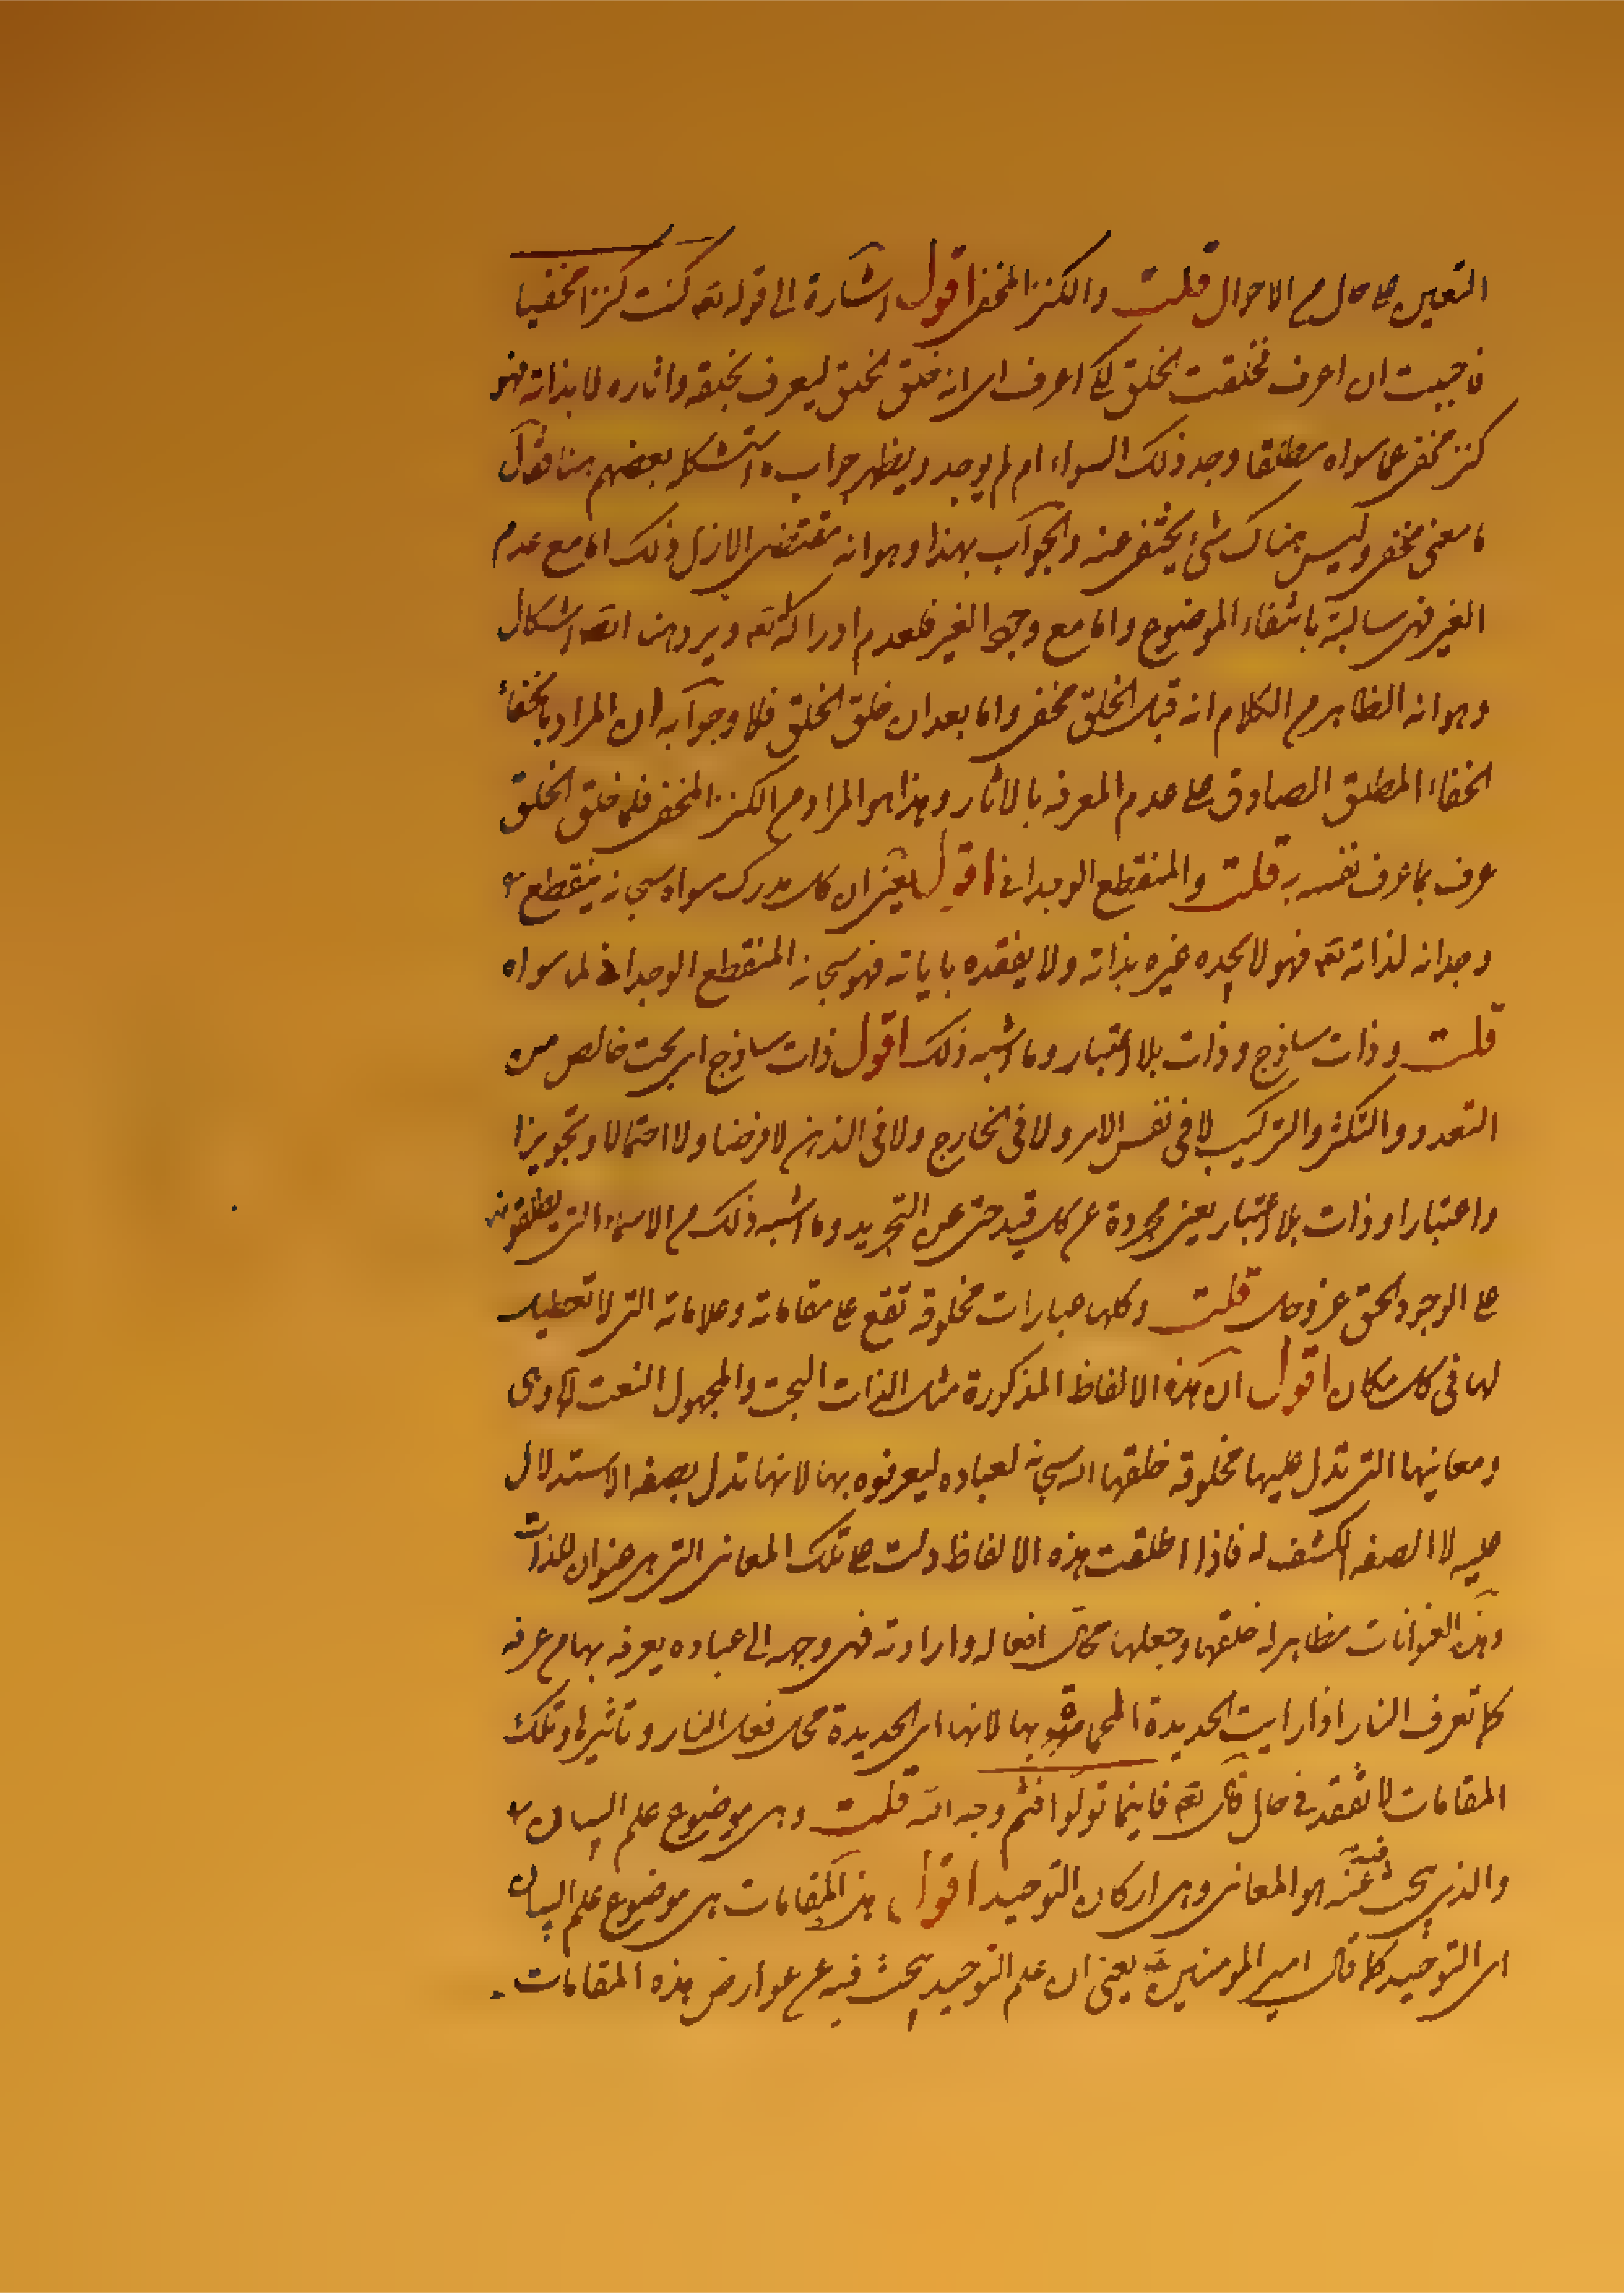 التعين على حال من الاحوال قلت والكنز المخفى اقول اشارة الى قوله تعالى كنت كنزا مخفيا
فاحببت ان اعرف فخلقت الخلق لكى اعرف اى انه خلق الخلق ليعرف بخلقه واثاره لا بذاته فهو
كنز مخفى عما سواه مطلقا وجد ذلك السواء ام لم يوجد ويظهر جواب ما استشكله بعضهم هنا فقال
ما معنى مخفى وليس هناك شئ يختفى عنه والجواب بهذا وهو انه مقتضى الازل وذلك اما مع عدم
الغير فهى سالبة بانتفاء الموضوع واما مع وجود الغير فلعدم ادراكه له تعالى ويرد هنا ايضا اشكال
وهو انه الظاهر من الكلام انه قبل الخلق مخفى واما بعد ان خلق الخلق فلا وجوابه ان المراد بالخفاء
الخفاء المطلق الصادق على عدم المعرفه بالاثار وهذا هو المراد من الكنز المخفى فلما خلق الخلق
عرف بما عرف نفسه به قلت والمنقطع الوجدانى اقول يعنى ان كل مدرك سواه سبحانه ينقطع
وجدانه لذاته تعالى فهو لا يجده غيره بذاته ولا يفقده باياته فهو سبحانه المنقطع الوجدانى لما سواه
قلت وذات ساذج وذات بلا اعتبار وما اشبه ذلك اقول ذات ساذج اى بحت خالص من
التعدد والتكثر والتركيب لا فى نفس الامر ولا فى الخارج ولا فى الذهن لا فرضا ولا احتمالا وتجويزا
واعتبارا وذات بلا اعتبار يعنى مجردة عن كل قيد حتى عن التجريد وما اشبه ذلك من الاسماء التى يطلقونه
على الوجود الحق عز وجل قلت وكلها عبارات مخلوقة تقع على مقاماته وعلاماته التى لا تعطيل
لها فى كل مكان اقول ان هذه الالفاظ المذكورة مثل الذات البحت والمجهول النعت
ومعانيها التى تدل عليها مخلوقة خلقها الله سبحانه لعباده ليعرفوه بها لانها تدل بصفة الاستدلال
عليه لا الصفه الكشف له فاذا اطلقت هذه الالفاظ دلت على تلك المعانى التى هى عنوان للذات
وهذه العنوانات مظاهر له خلقها وجعلها محال افعاله وارادته فهى وجهه الى عباده يعرفه بها من عرفه
كما تعرف النار اذا رايت الحديدة المحماة بها لانها اى الحديدة محل فعل النار وتاثيرها وتلك
المقامات لا تفقد فى حال قال تعالى فاينما تولوا فثم وجه الله قلت وهى موضوع علم البيان
والذى يبحث فيه عنه هو المعانى وهى اركان التوحيد اقول هذه المقامات هى موضوع علم البيان
اى التوحيد كما قال امير المومنين ع يعنى ان علم التوحيد يبحث فيه عن عوارض هذه المقامات